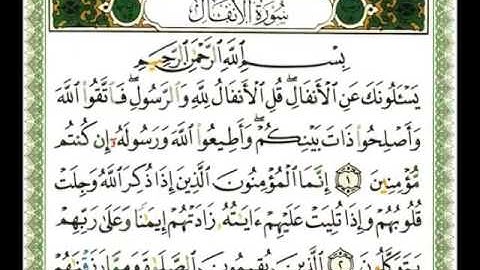 سُورَةُ الأَنفَالِ
بِسْمِ اللَّهِ الرَّحْمَٰنِ الرَّحِيمِ
يَسْـَٔلُونَكَ عَنِ ٱلْأَنفَالِ ۖ قُلِ ٱلْأَنفَالُ لِلَّهِ وَٱلرَّسُولِ ۖ فَٱتَّقُوا۟ ٱللَّهَ
وَأَصْلِحُوا۟ ذَاتَ بَيْنِكُمْ ۖ وَأَطِيعُوا۟ ٱللَّهَ وَرَسُولَهُۥٓ إِن كُنتُم
مُّؤْمِنِينَ ١ إِنَّمَا ٱلْمُؤْمِنُونَ ٱلَّذِينَ إِذَا ذُكِرَ ٱللَّهُ وَجِلَتْ
قُلُوبُهُمْ وَإِذَا تُلِيَتْ عَلَيْهِمْ ءَايَٰتُهُۥ زَادَتْهُمْ إِيمَٰنًا وَعَلَىٰ رَبِّهِمْ
يَتَوَكَّلُونَ ٢ ٱلَّذِينَ يُقِيمُونَ ٱلصَّلَوٰةَ وَمِمَّا رَزَقْنَٰهُمْ